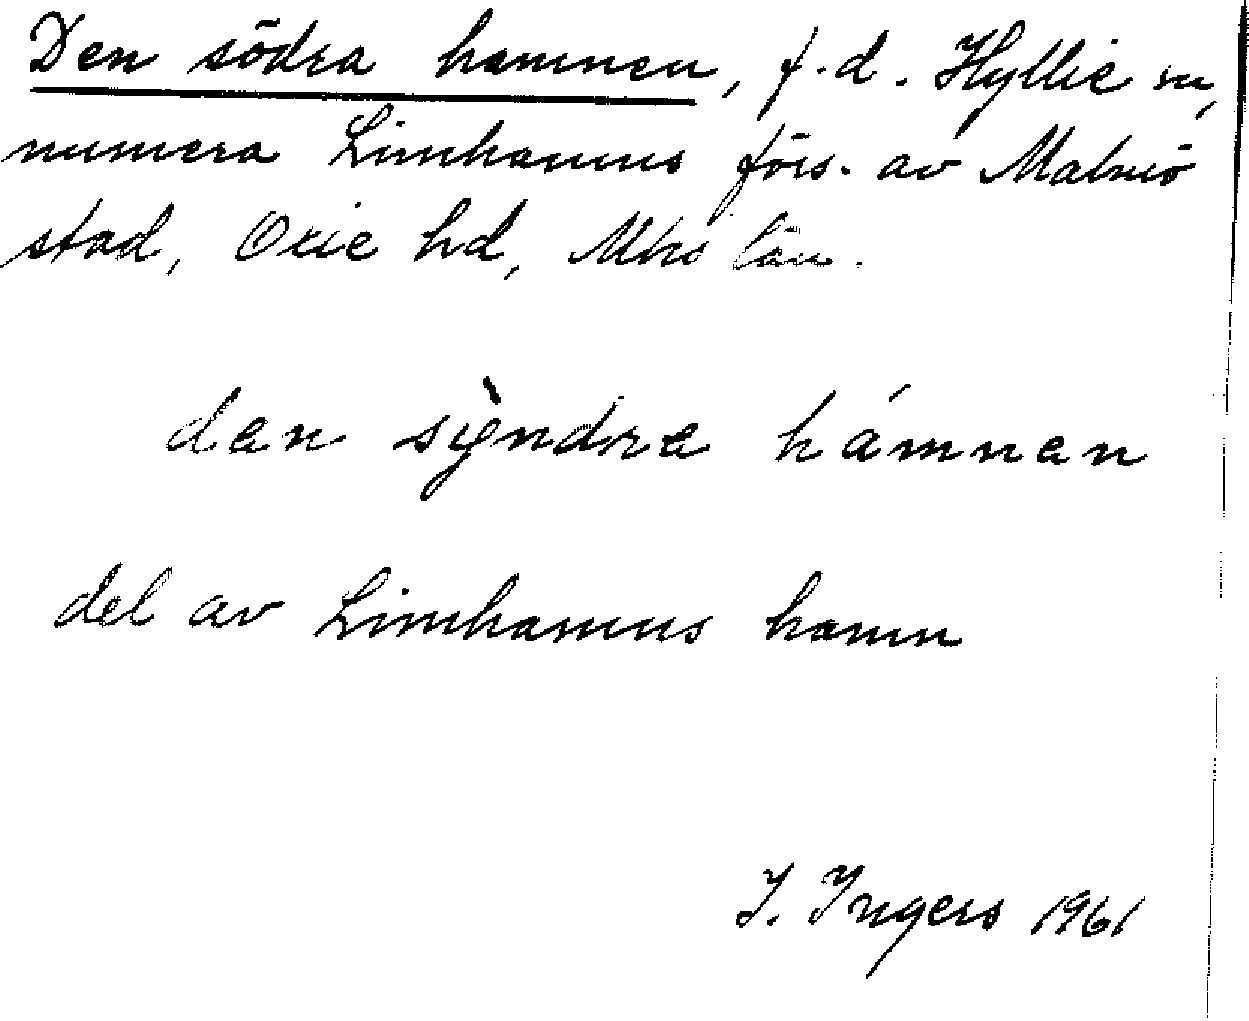 Den södra hamnen, f.d. Hyllie sn,
numera Limhamns förs. av Malmö
stad, Oxie hd, Mhs län.
den sỳndra hámnan
del av Limhamns hamn
I. Ingers 1961